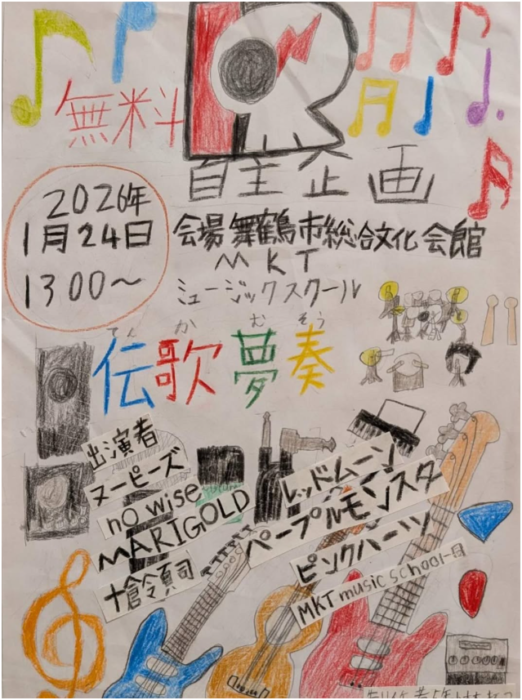 無料
自主企画
2026年
1月24日
1300～
会場 舞鶴市総合文化会館
MKT
ミュージックスクール
でん か む そう
伝歌夢奏
出演者
ヌーピーズ
no wise
MARIGOLD
十倉令真司
レッドムーン
ペープルモンスター
ピンクパーツ
MKT music school一同